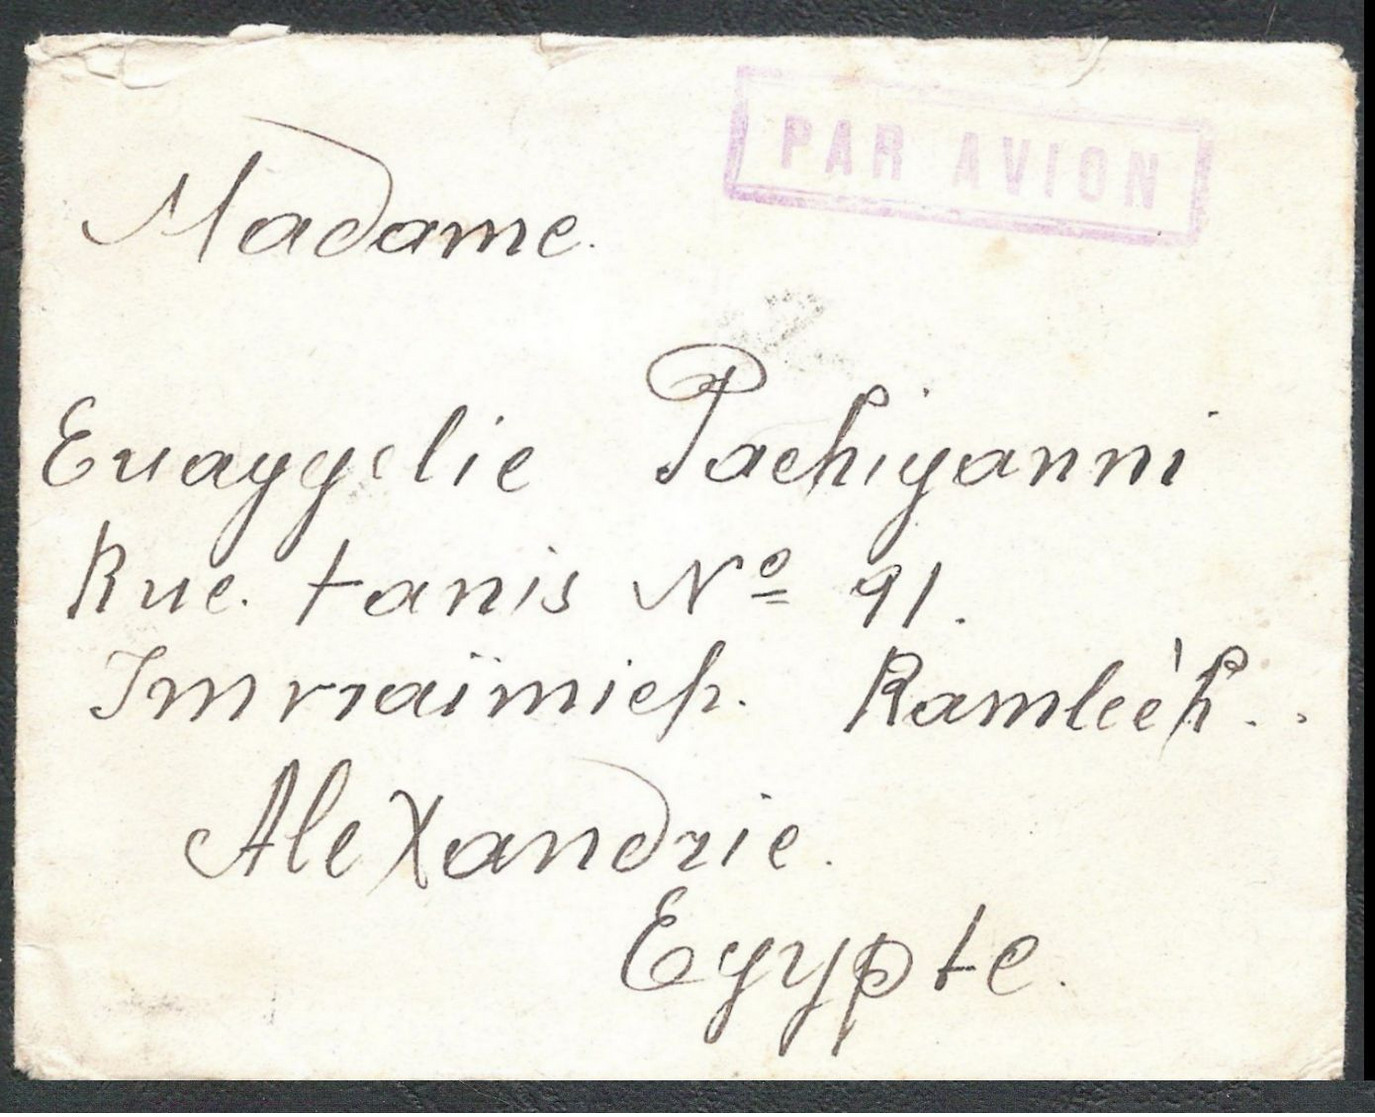 PAR AVION
Madame.
Evaggelie Pachiyanni
Rue. tanis Nº 91.
Imvraïmieh. Ramleèh..
Alexandrie.
Egypte.